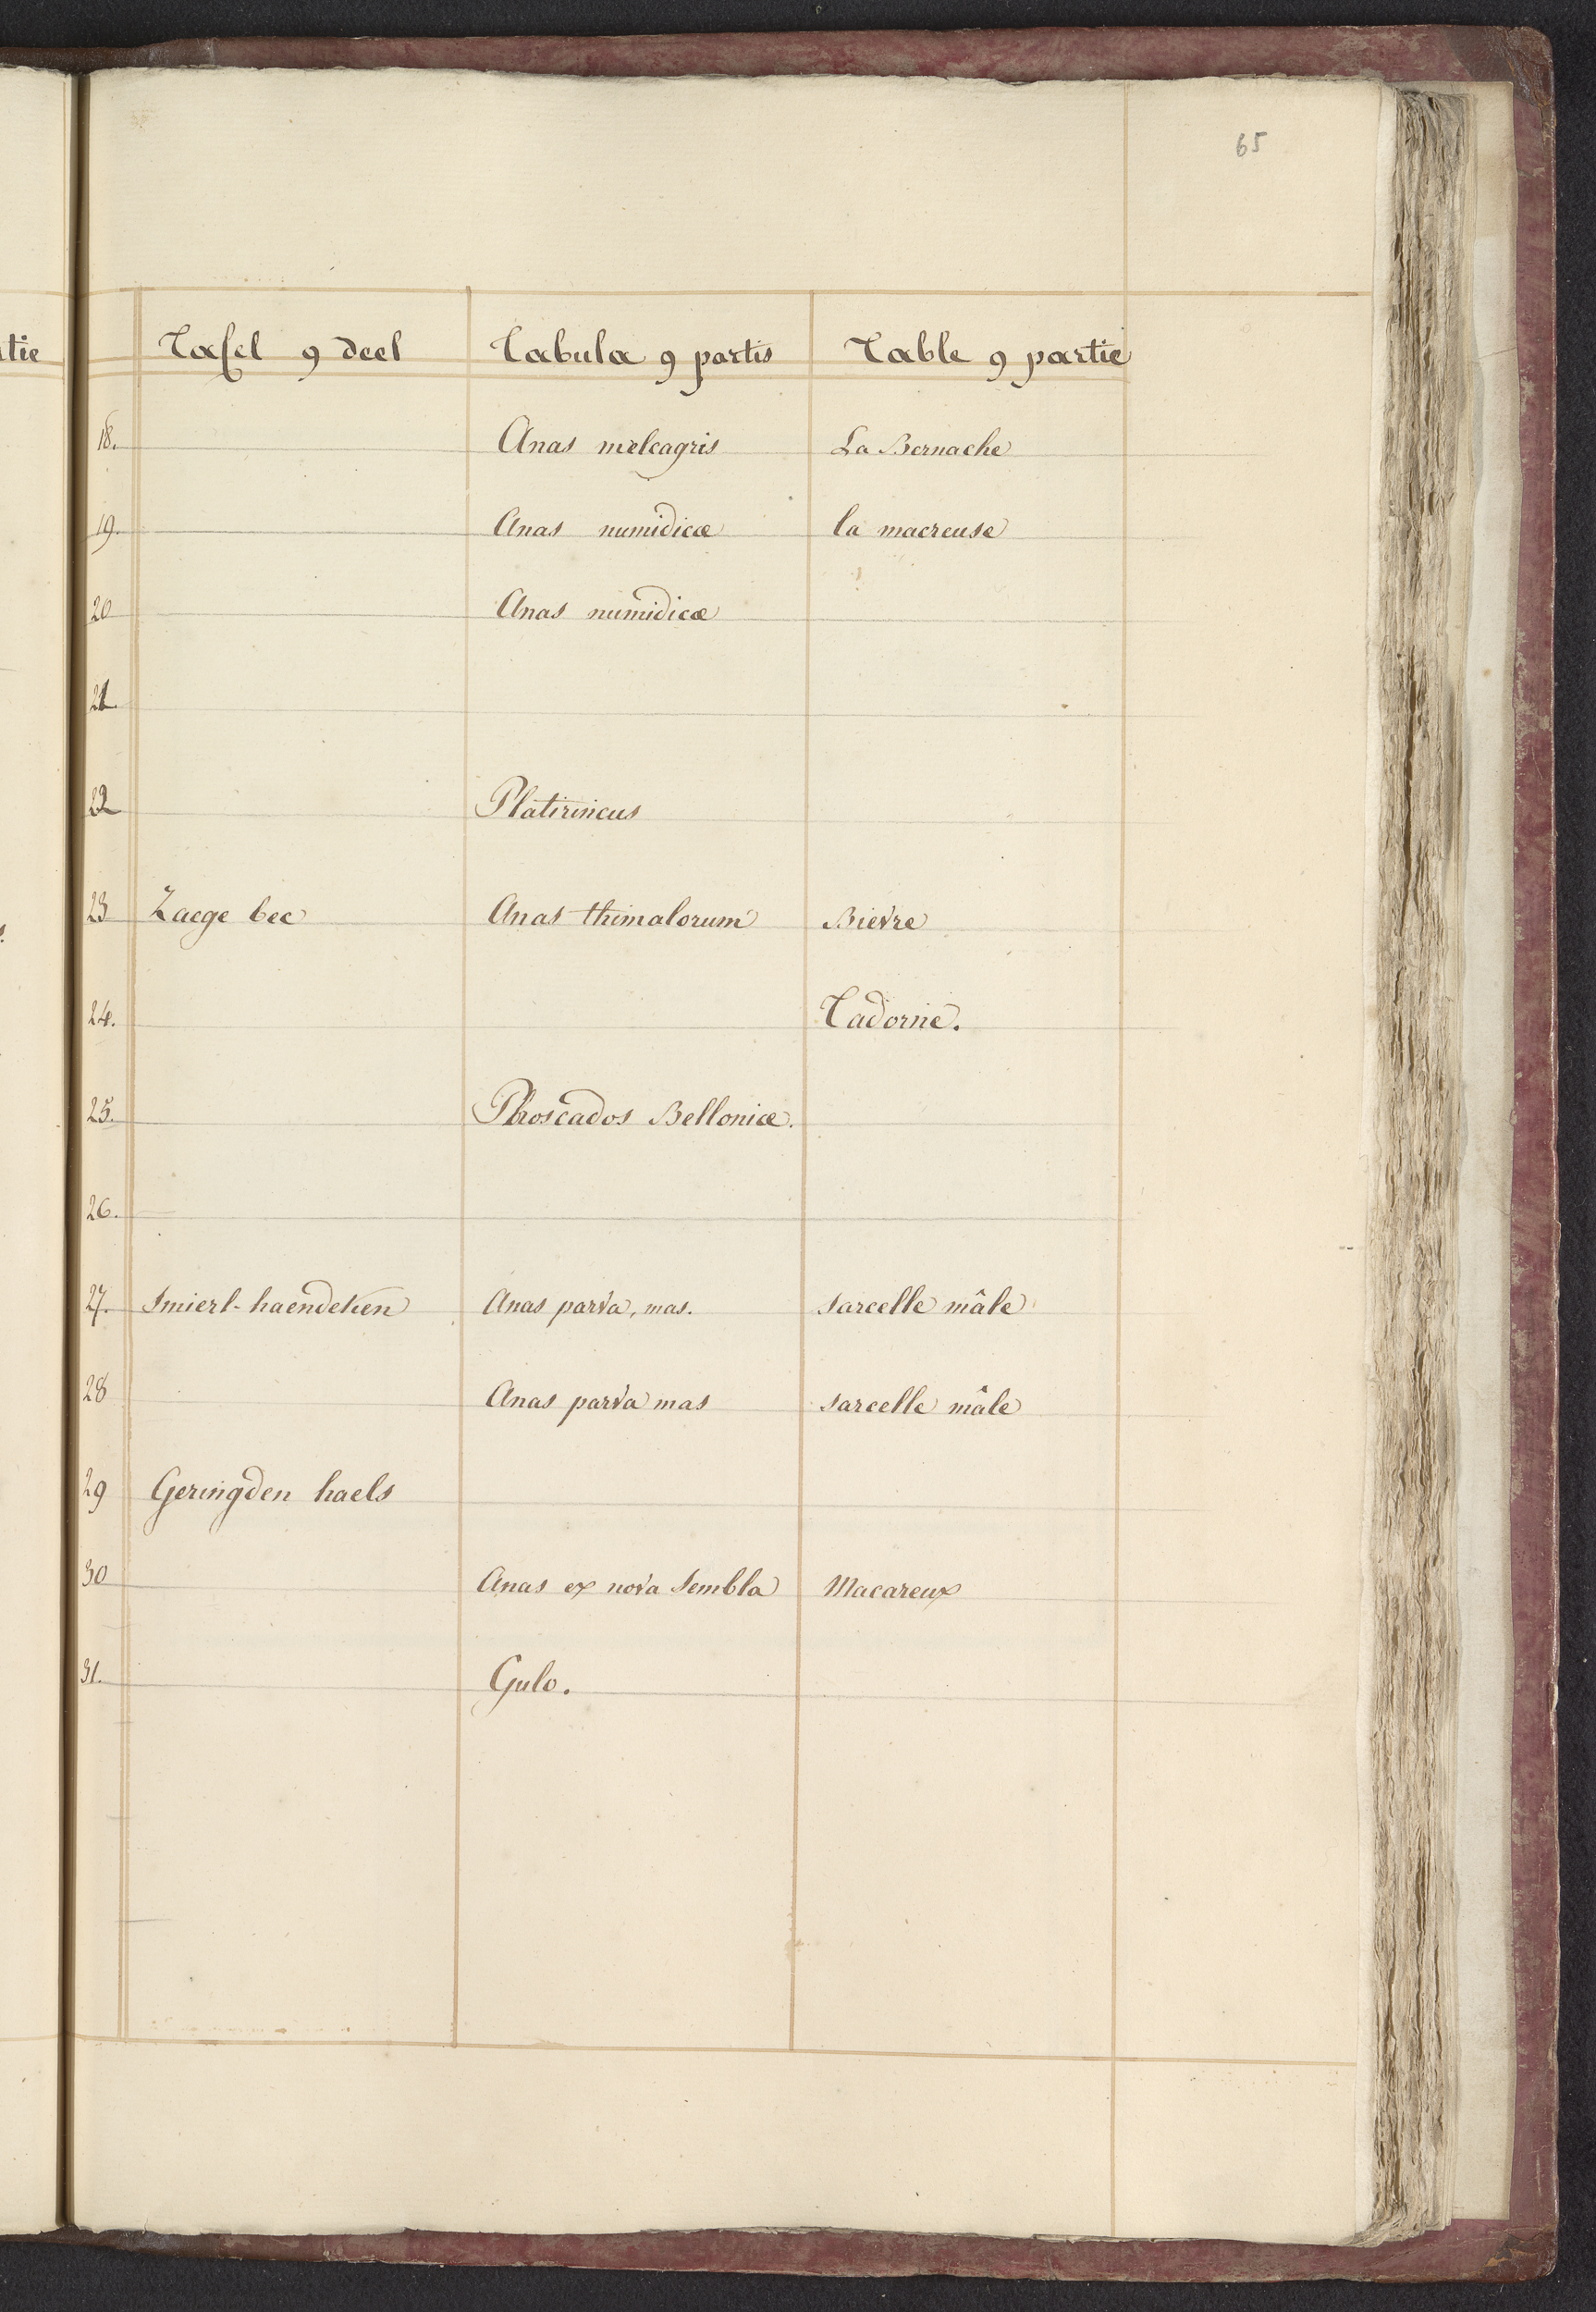 65
tie
Tafel 9 deel Tabula 9 partis Table 9 partie
18. Anas meleagris La Bernache
19. Anas numidicæ la macreuse
20 Anas numidicæ
21.
22 Platirincus
23 Zaege bec Anas thimalorum Bievre
24. Tadorne.
25. Phoscados Belloniæ.
26.
27. Smierl-haendeken Anas parva, mas. sarcelle mâle
28 Anas parva mas sarcelle mâle
29 Geringden haels
30 Anas ex nova Sembla Macareux
31. Gulo.